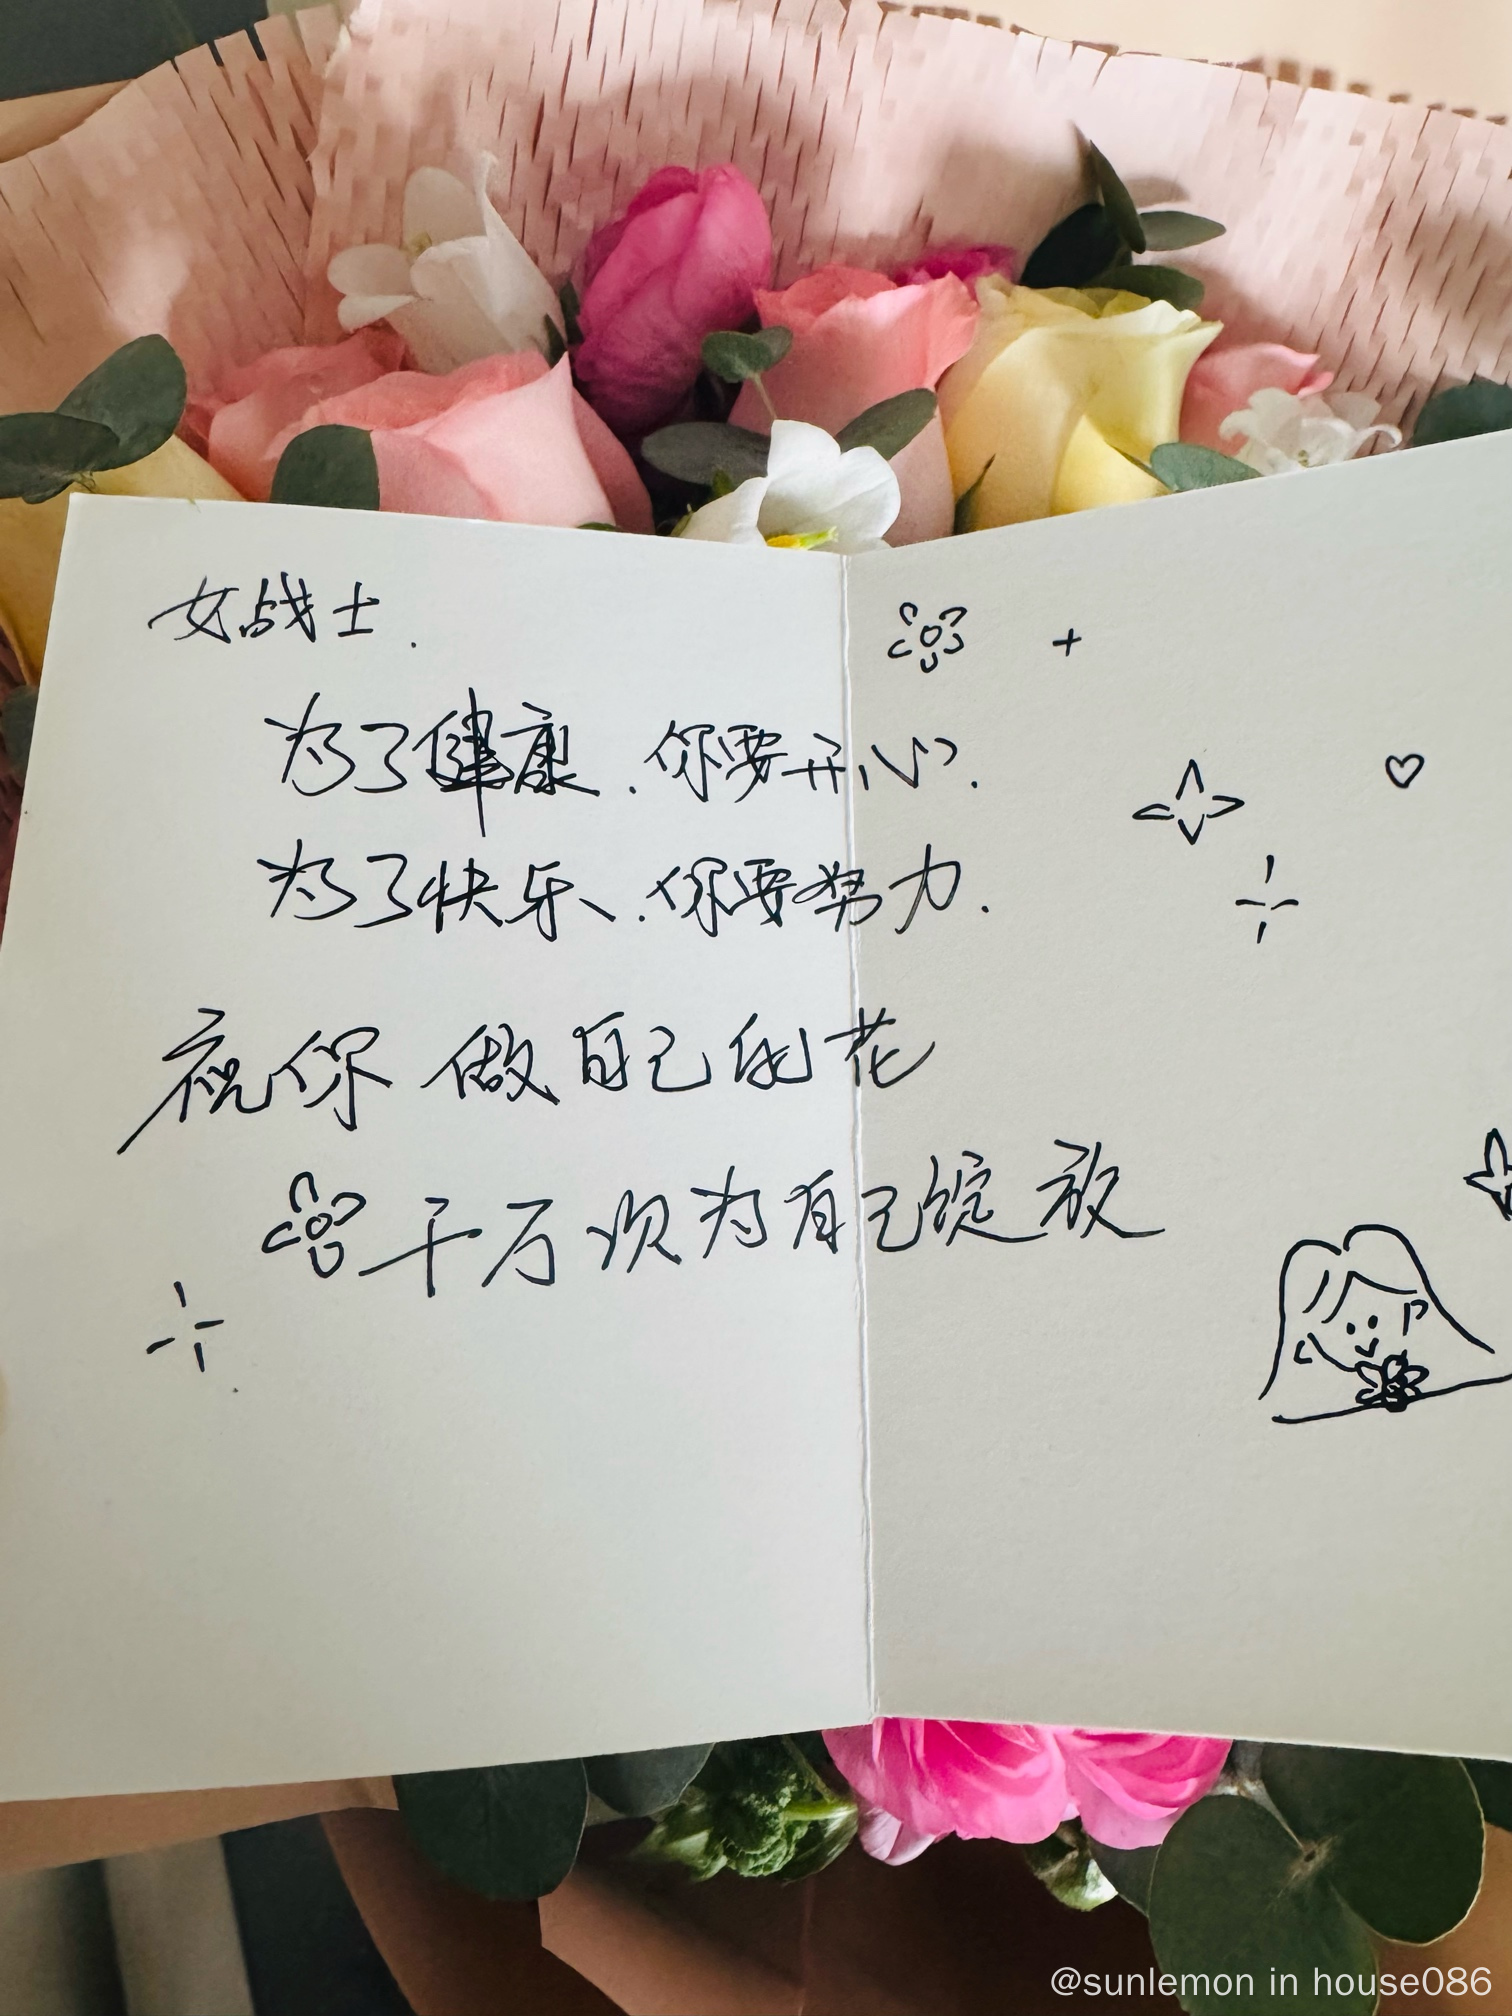 女战士.
为了健康.你要开心.
为了快乐.你要努力.
祝你 做自己的花
千万次为自己绽放
@sunlemon in house086